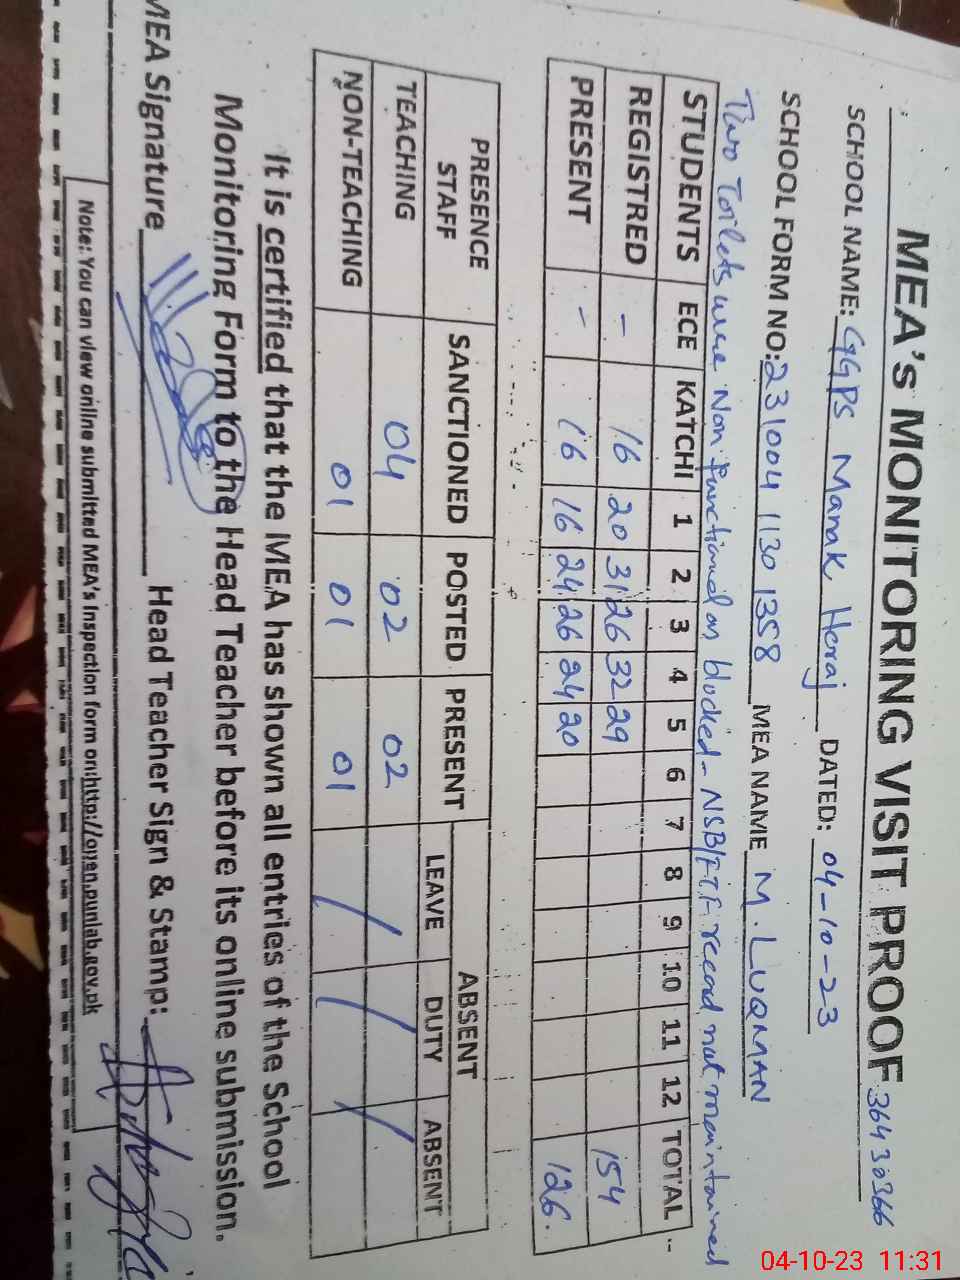 MEA's MONITORING VISIT PROOF 36430366
SCHOOL NAME: GGPS Manak Heraj DATED: 04-10-23
SCHOOL FORM NO: 2310041130 1358 MEA NAME M. LUQMAN
Two Toilets were Non functional on blocked - NSB/FTF record not maintained
STUDENTS ECE KATCHI 1 2 3 4 5 6 7 8 9 10 11 12 TOTAL
REGISTRED - 16 20 31 26 32 29 154
PRESENT - 16 16 24 26 24 20 126.
PRESENCE STAFF SANCTIONED POSTED PRESENT ABSENT
LEAVE DUTY ABSENT
TEACHING 04 02 02 / / /
NON-TEACHING 01 01 01
It is certified that the MEA has shown all entries of the School
Monitoring Form to the Head Teacher before its online submission.
MEA Signature Head Teacher Sign & Stamp:
Note: You can view online submitted MEA's Inspection form on:http://open.punjab.gov.pk
04-10-23 11:31